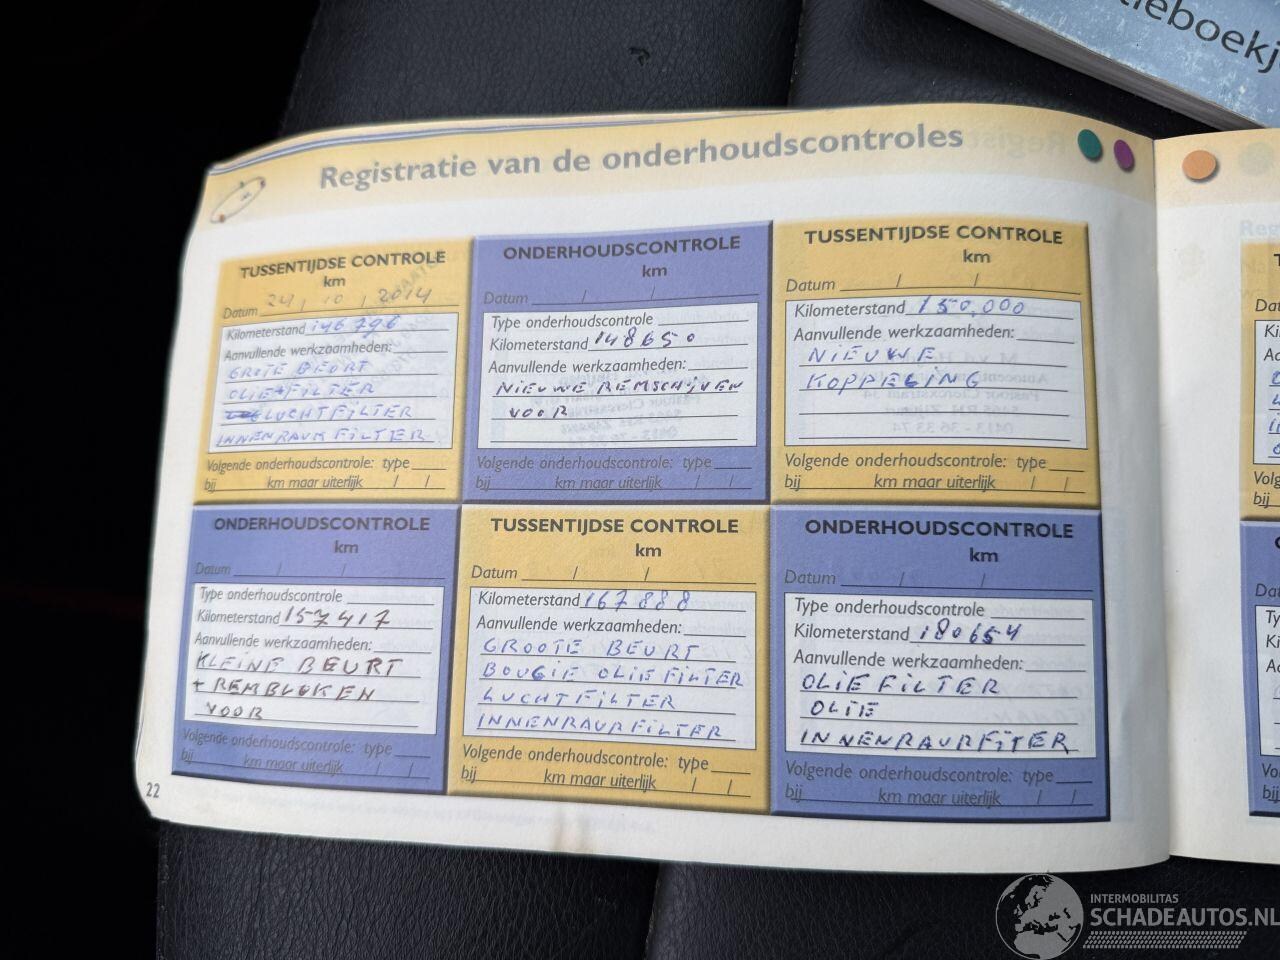 Registratie van de onderhoudscontroles
TUSSENTIJDSE CONTROLE
km
Datum 24 / 10 / 2014
Kilometerstand 146796
Aanvullende werkzaamheden:
GROTE BEURT
OLIE+FILTER
LUCHTFILTER
INNENRAUM FILTER
Volgende onderhoudscontrole: type
bij km maar uiterlijk / /
ONDERHOUDSCONTROLE
km
Datum / /
Type onderhoudscontrole
Kilometerstand 148650
Aanvullende werkzaamheden:
NIEUWE REMSCHIJVEN
VOOR
Volgende onderhoudscontrole: type
bij km maar uiterlijk / /
TUSSENTIJDSE CONTROLE
km
Datum / /
Kilometerstand 150,000
Aanvullende werkzaamheden:
NIEUWE
KOPPELING
Volgende onderhoudscontrole: type
bij km maar uiterlijk / /
ONDERHOUDSCONTROLE
km
Datum / /
Type onderhoudscontrole
Kilometerstand 157417
Aanvullende werkzaamheden:
KLEINE BEURT
+ REMBLOKEN
VOOR
Volgende onderhoudscontrole: type
bij km maar uiterlijk / /
TUSSENTIJDSE CONTROLE
km
Datum / /
Kilometerstand 167888
Aanvullende werkzaamheden:
GROOTE BEURT
BOUGIE OLIE FILTER
LUCHTFILTER
INNENRAURFILTER
Volgende onderhoudscontrole: type
bij km maar uiterlijk / /
ONDERHOUDSCONTROLE
km
Datum / /
Type onderhoudscontrole
Kilometerstand 180654
Aanvullende werkzaamheden:
OLIE FILTER
OLIE
INNENRAURFITER
Volgende onderhoudscontrole: type
bij km maar uiterlijk / /
22
INTERMOBILITAS
SCHADEAUTOS.NL